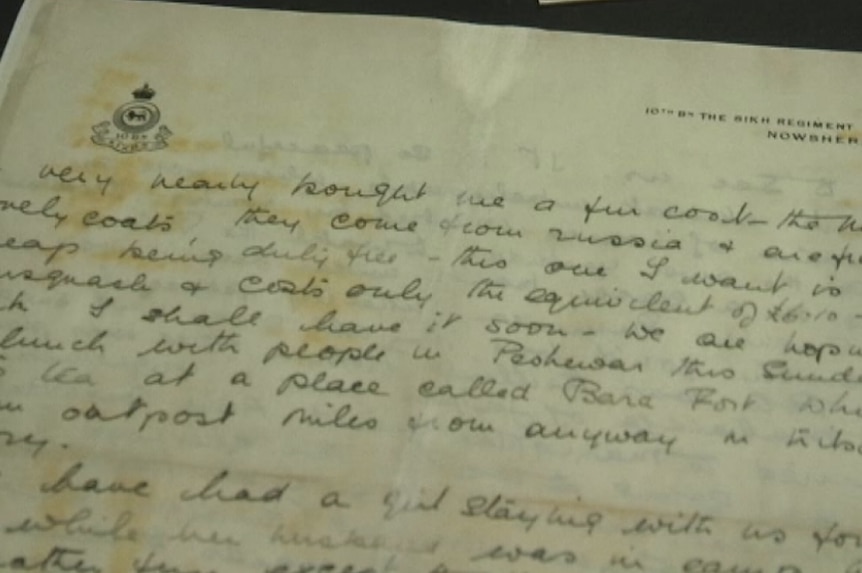 10TH BN THE SIKH REGIMENT
NOWSHER
10 BN
SIKHS
very nearly bought me a fur coat - the
vely coats they come from russia &
eap being duty free - this one I want is
usquash & costs only the equivilent of £6.10 -
I shall have it soon - we are hopin
lunch with people in Peshewar this Sunda
tea at a place called Bara Fort whe
outpost miles from anyway in
have had a girl staying with us for
while her husband was in camp